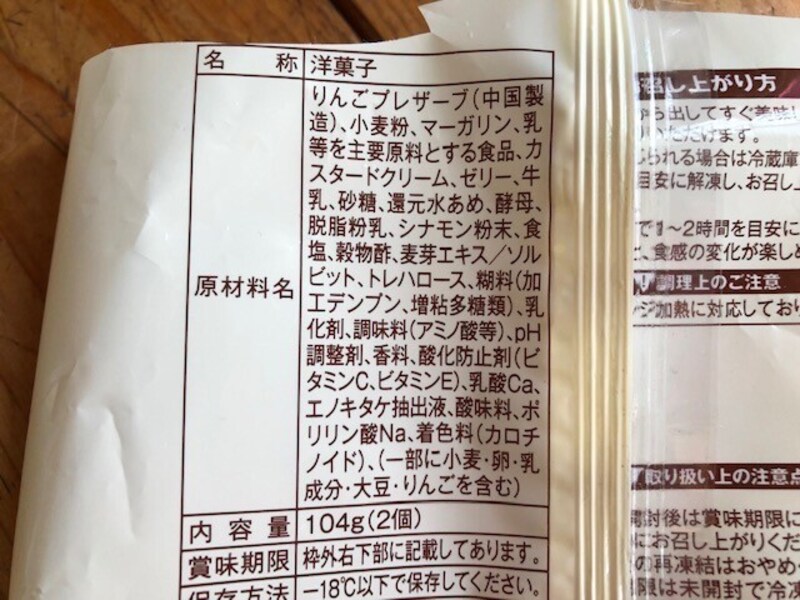 名 称 洋菓子
原材料名
りんごプレザーブ(中国製
造)、小麦粉、マーガリン、乳
等を主要原料とする食品、カ
スタードクリーム、ゼリー、牛
乳、砂糖、還元水あめ、酵母、
脱脂粉乳、シナモン粉末、食
塩、穀物酢、麦芽エキス/ソル
ビット、トレハロース、糊料(加
工デンプン、増粘多糖類)、乳
化剤、調味料(アミノ酸等)、pH
調整剤、香料、酸化防止剤(ビ
タミンC、ビタミンE)、乳酸Ca、
エノキタケ抽出液、酸味料、ポ
リリン酸Na、着色料(カロチ
ノイド)、(一部に小麦・卵・乳
成分・大豆・りんごを含む)
内容量 104g(2個)
賞味期限 枠外右下部に記載してあります。
保存方法 −18℃以下で保存してください。
召し上がり方
から出してすぐ美味し
いただけます。
じられる場合は冷蔵庫
目安に解凍し、お召し上
で1〜2時間を目安に
食感の変化が楽しめ
調理上のご注意
ジ加熱に対応しており
取り扱い上の注意点
開封後は賞味期限に
にお召し上がりくだ
の再凍結はおやめ
限は未開封で冷凍